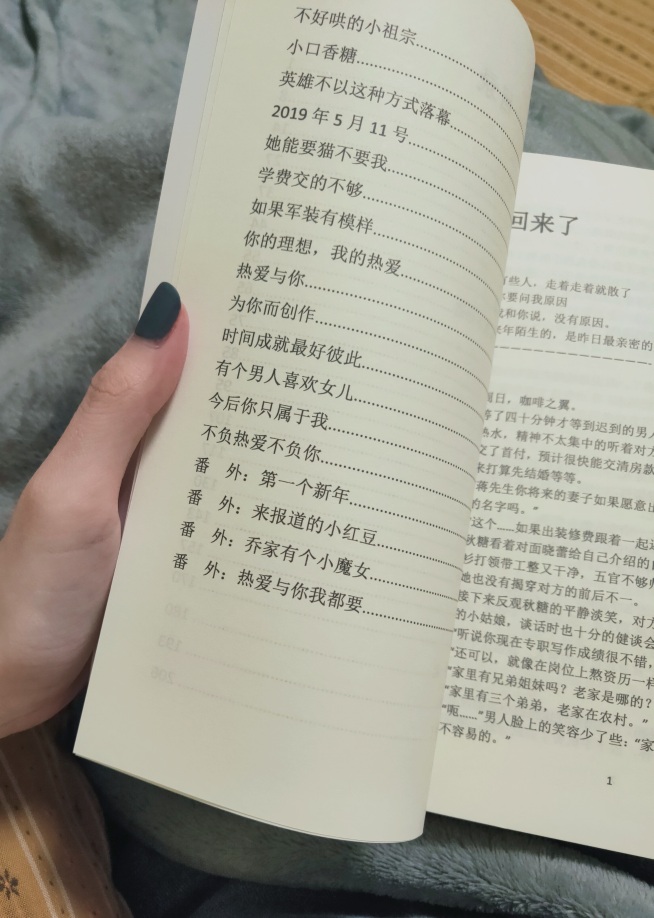 不好哄的小祖宗
小口香糖
英雄不以这种方式落幕
2019年5月11号
她能要猫不要我
学费交的不够
如果军装有模样
你的理想，我的热爱
热爱与你
为你而创作
时间成就最好彼此
有个男人喜欢女儿
今后你只属于我
不负热爱不负你
番 外：第一个新年
番 外：来报道的小红豆
番 外：乔家有个小魔女
番 外：热爱与你我都要
回来了
有些人，走着走着就散了
要问我原因
和你说，没有原因。
年陌生的，是昨日最亲密的
日，咖啡之翼。
等了四十分钟才等到迟到的男人
热水，精神不太集中的听着对方
之了首付，预计很快能交清房款
来打算先结婚等等。
蒋先生你将来的妻子如果愿意出
的名字吗。”
这个……如果出装修费跟着一起还
秋糖看着对面晓蕾给自己介绍的
衫打领带工整又干净，五官不够
她也没有揭穿对方的前后不一。
接下来反观秋糖的平静淡笑，对方
的小姑娘，谈话时也十分的健谈会
“听说你现在专职写作成绩很不错，
“还可以，就像在岗位上熬资历一样
“家里有兄弟姐妹吗？老家是哪的？
“家里有三个弟弟，老家在农村。”
“呃……”男人脸上的笑容少了些：“家
不容易的。”
1